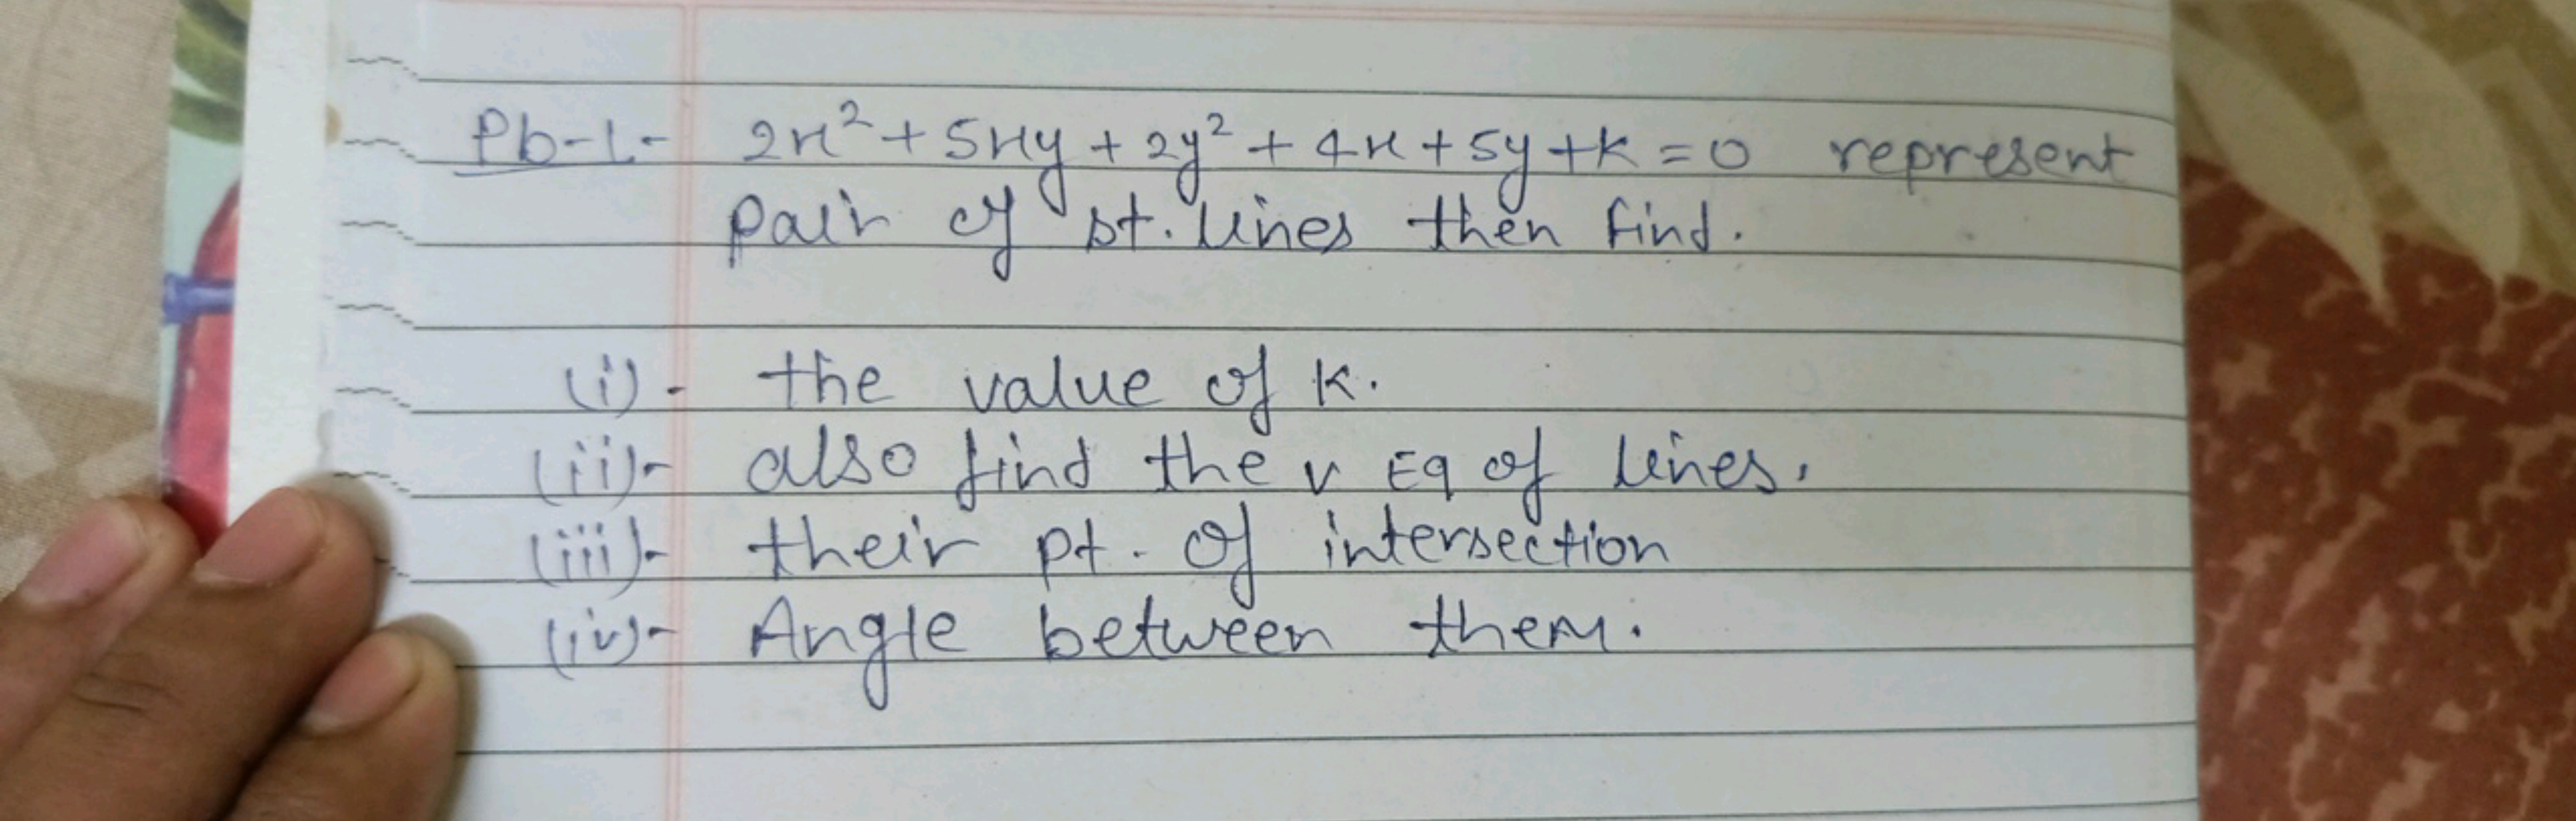 Pb-1- 2x² + 5xy + 2y² + 4x + 5y + k = 0 represent
pair of st. lines then find.
(i). the value of k.
(ii)- also find the v Eq of lines.
(iii)- their pt. of intersection
(iv)- Angle between them.